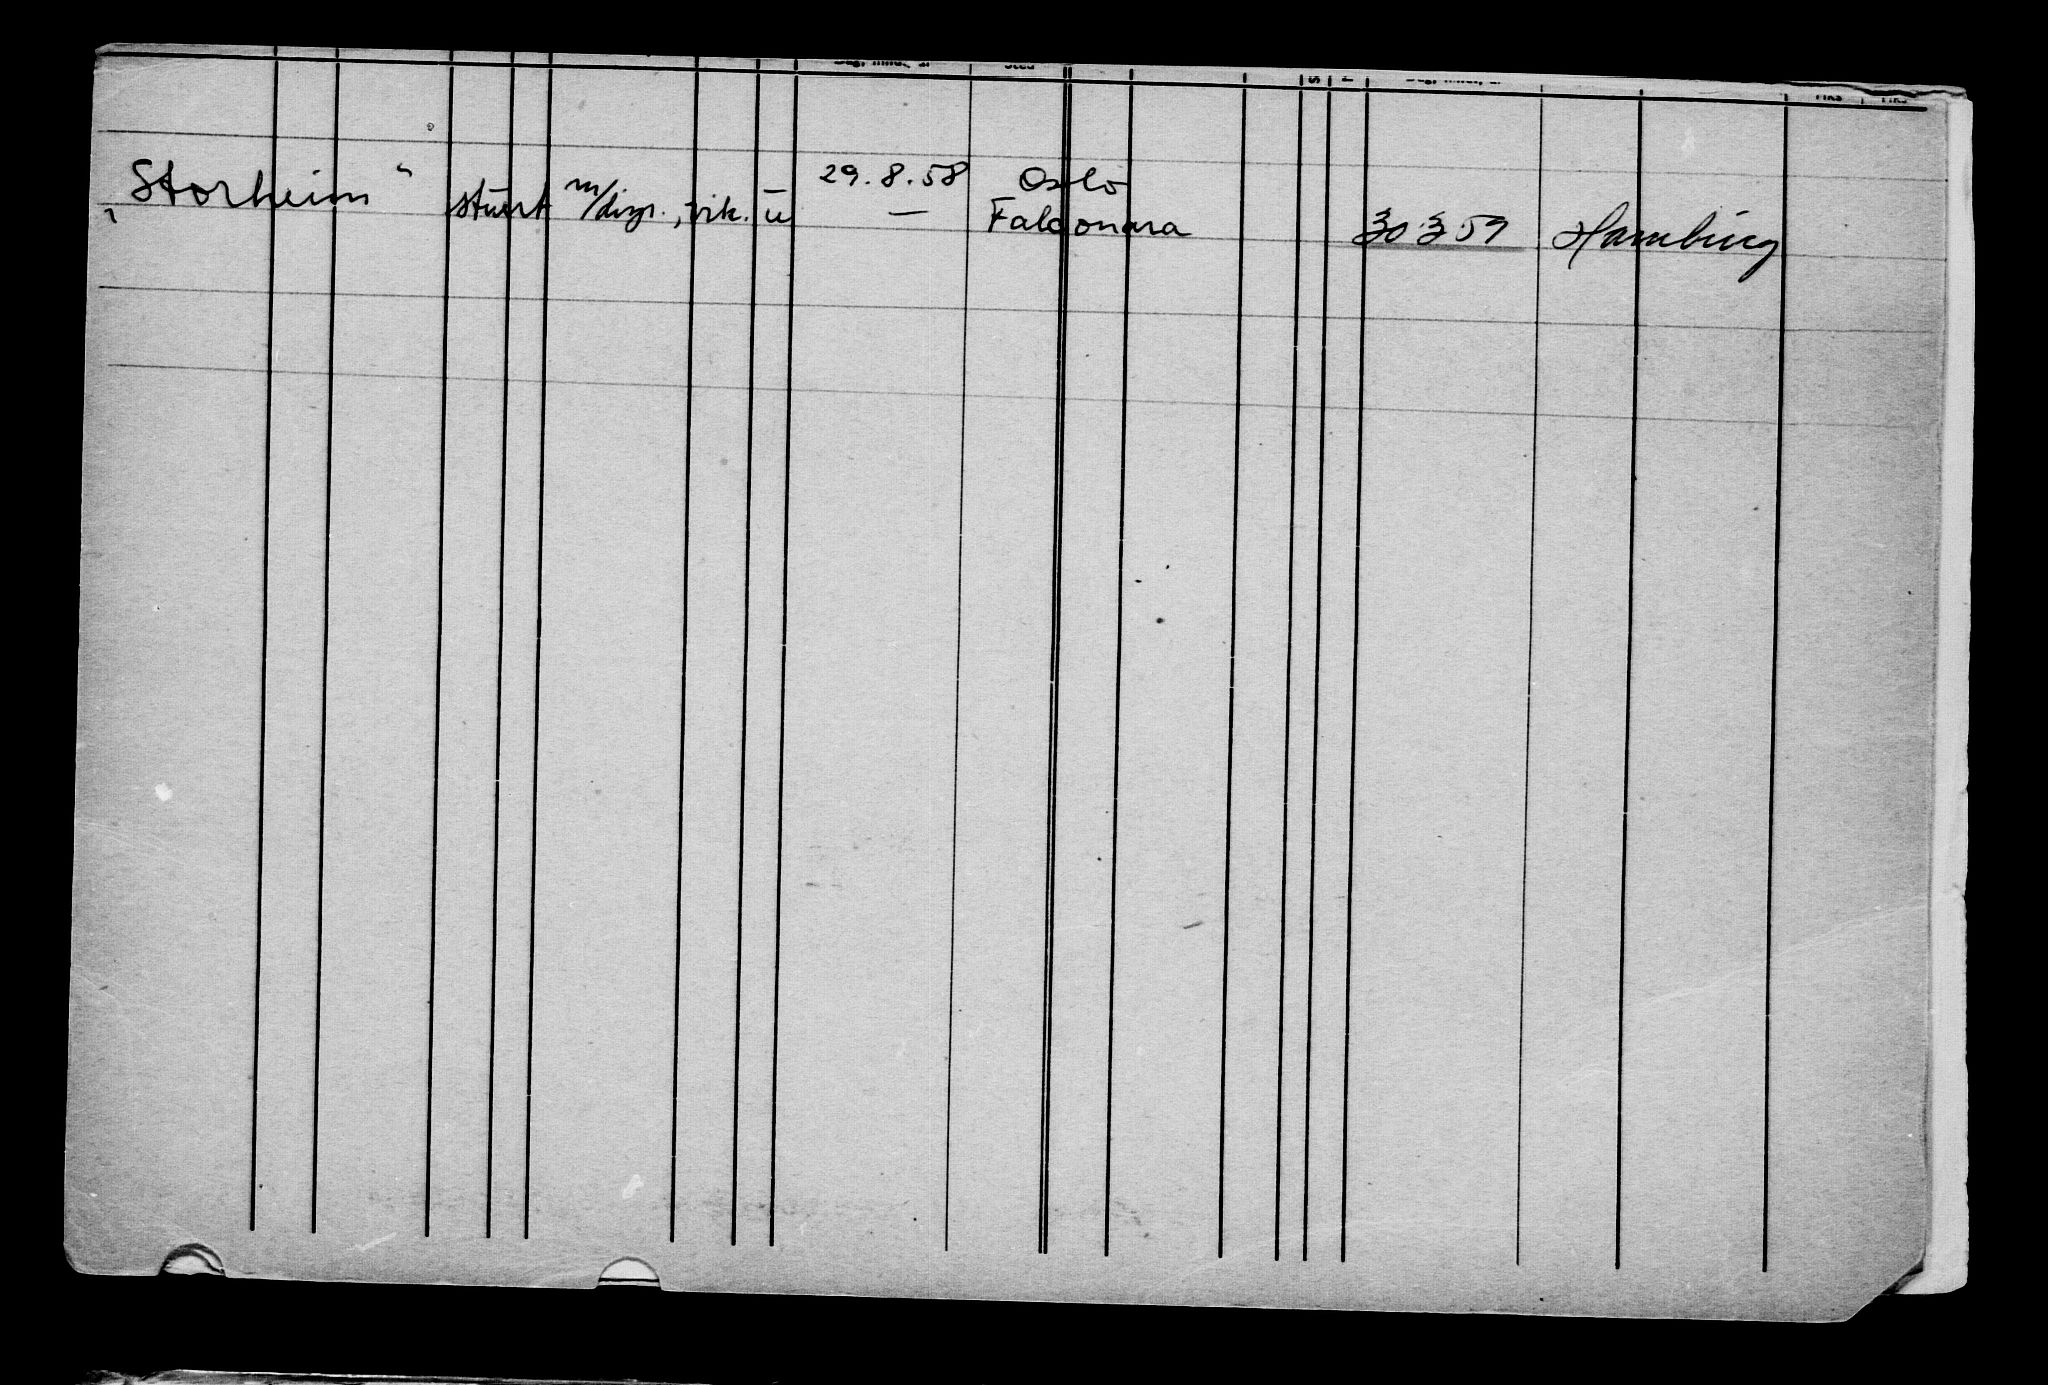 Sted
"Storheim" stuert m/dispr., vik. u 29.8.58 Oslo
— Falconara 30.3.59 Hamburg